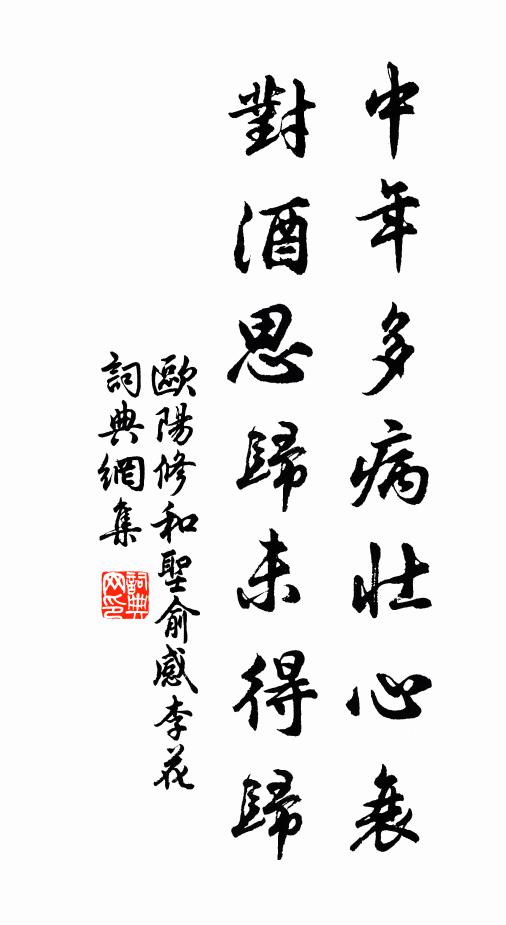 中年多病壯心衰
對酒思歸未得歸
歐陽修和聖俞感李花
詞典網集
詞典網印